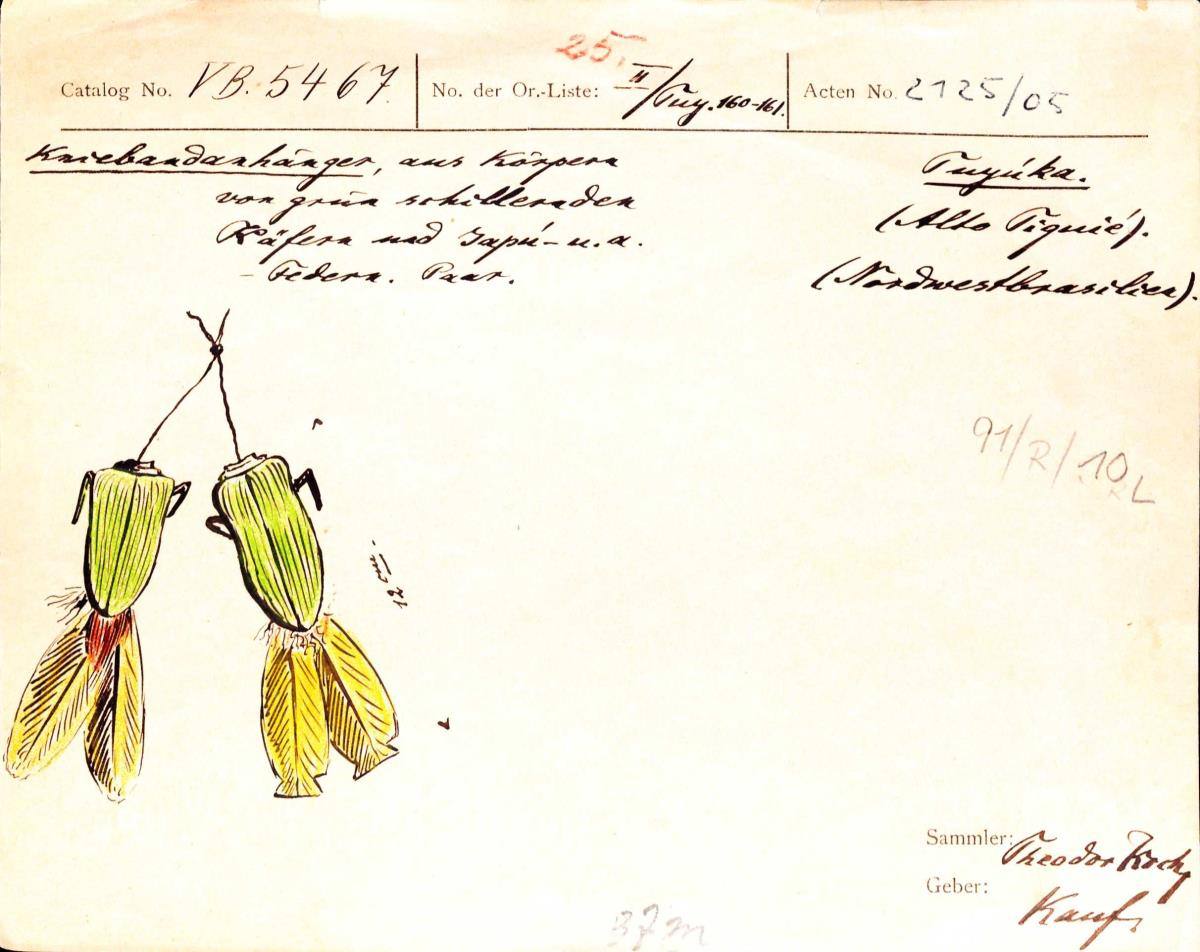 25.
Catalog No. VB. 5467.
No. der Or.-Liste: II/Tuy. 160-161.
Acten No. 2125/05
Kniebandanhänger, aus Körpern
von grün schillernden
Käfern und Japú- u. a.
- Federn. Paar.
Tuyúka.
(Alto Tiquié).
(Nordwestbrasilien).
91/R/10
RL
12 cm.
Sammler: Theodor Koch,
Geber: Kauf.
37m